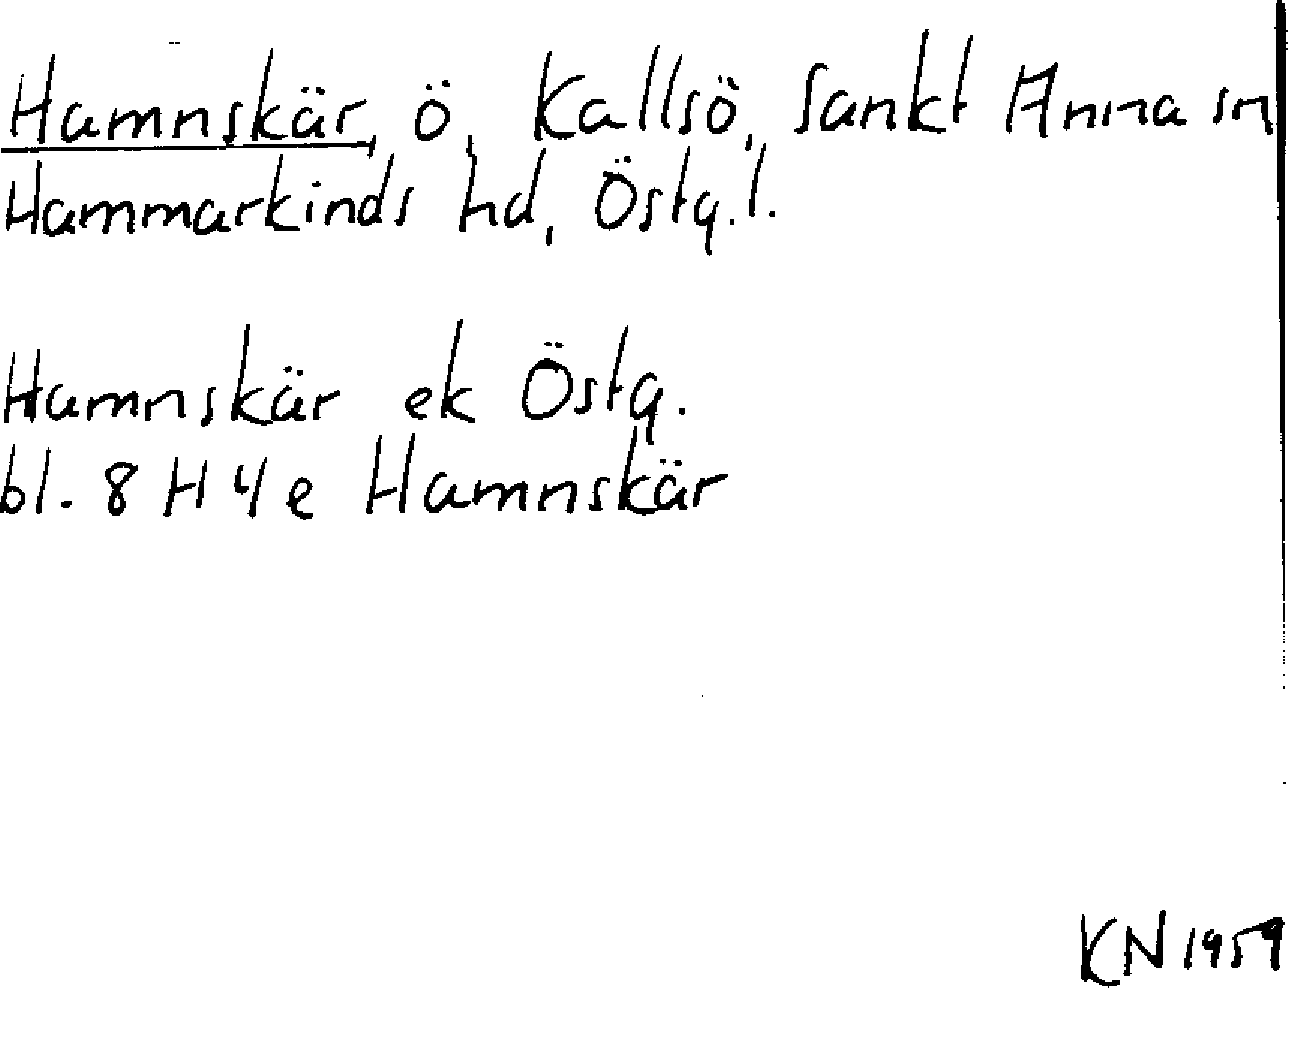 Hamnskär, ö, Kallsö, Sankt Anna sn
Hammarkinds hd, Östg.l.
Hamnskär ek Östg.
bl. 8 H 4 e Hamnskär
KN 1959